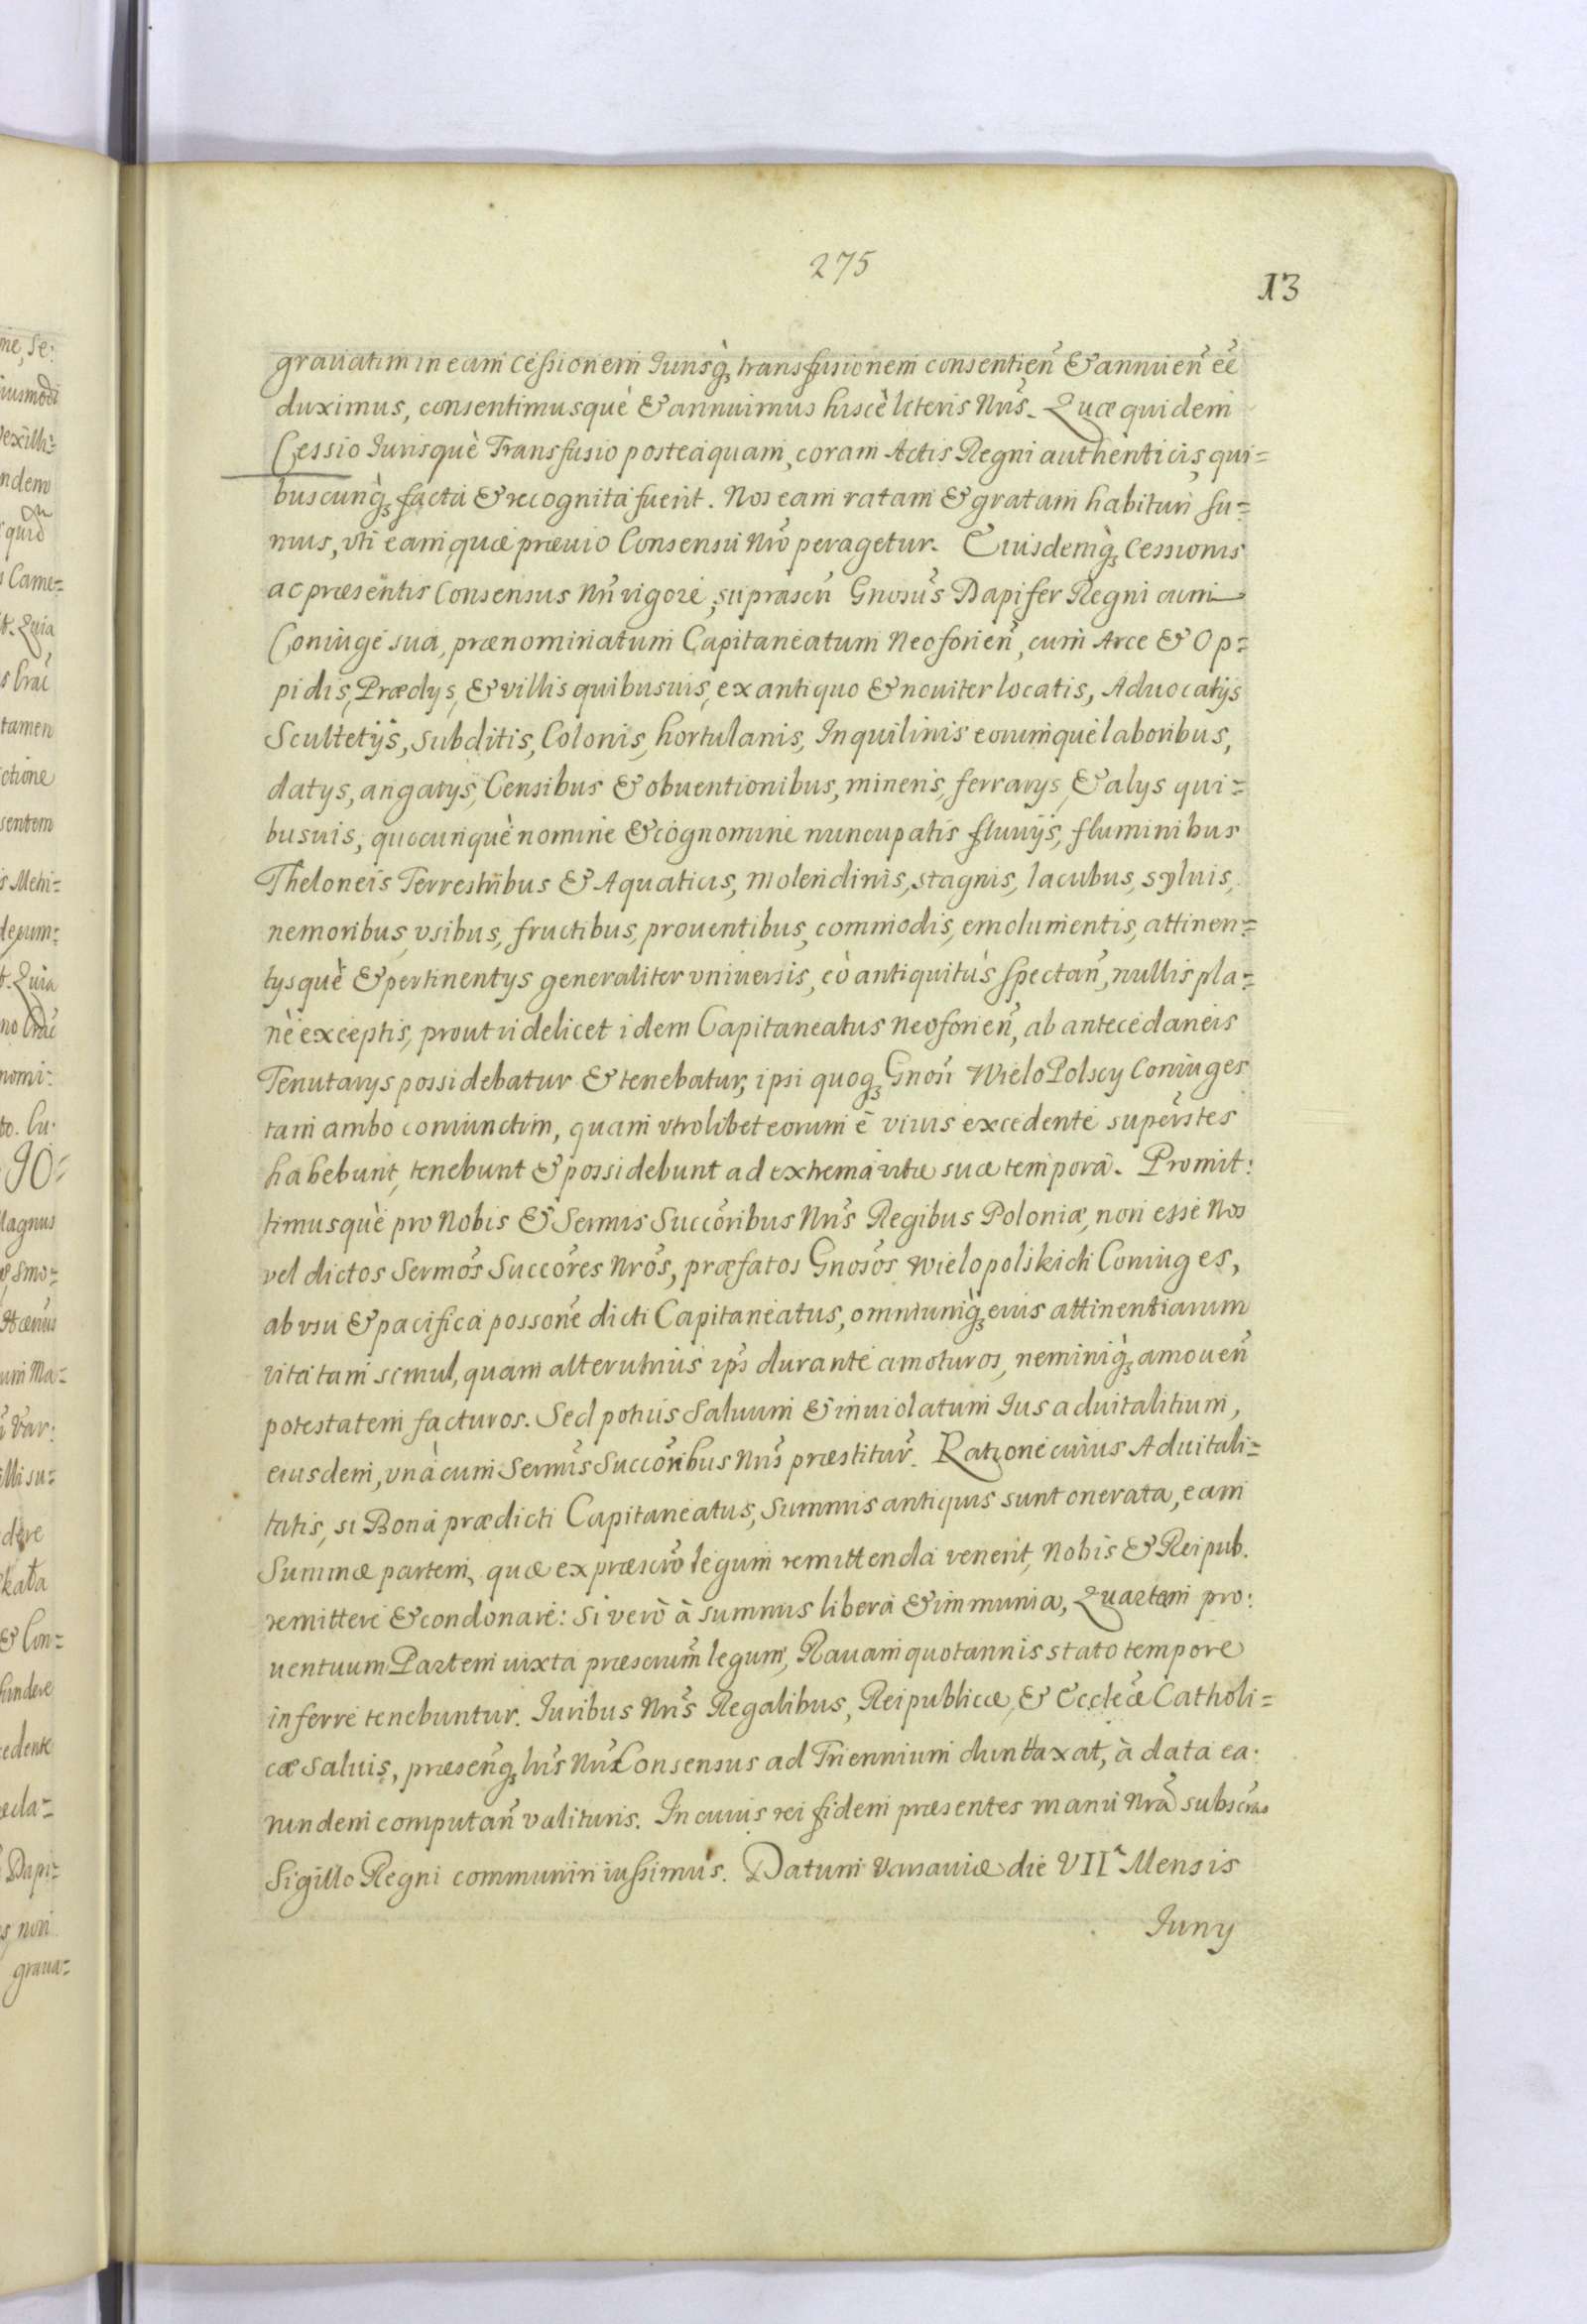 275
13
grauatim in eam cessionem Iurisq̀ꝫ transfusionem consentien̄ & annuen̄ eē
duximus, consentimusquè & annuimus hiscè literis Nr̄is. Quæ quidem
Cessio Iurisquè Transfusio posteaquam, coram Actis Regni authenticis, qui=
buscunq̀ꝫ facta & recognita fuerit. Nos eam ratam & gratam habituri su=
mus, vti eam, quæ præuio Consensu Nr̄o peragetur. Eiusdemq̀ꝫ Cessionis
ac præsentis Consensus Nr̄i vigore, suprascr̄i Gnosus Dapifer Regni cum
Coniuge sua, prænominatum Capitaneatum Neoforien̄, cum Arce & Op=
pidis, Prædys, & villis quibusuis, ex antiquo & nouiter locatis, Aduocatijs
Scultetijs, Subditis, Colonis, hortulanis, Inquilinis eorumquè laboribus,
datys, angarijs, Censibus & obuentionibus, mineris, ferrarys, & alys qui=
busuis, quocunquè nomine & cognomine nuncupatis fluuijs, fluminibus
Theloneis Terrestribus & Aquaticis, molendinis, stagnis, lacubus, syluis,
nemoribus, vsibus, fructibus, prouentibus, commodis, emolumentis, attinen=
tysquè & pertinentys generaliter vniuersis, eò antiquitùs spectan̄, nullis pla=
nè exceptis, prout videlicet idem Capitaneatus Neoforien̄, ab antecedaneis
Tenutarys possidebatur & tenebatur, ipsi quoqꝫ Gnosi WieloPolscy Coniuges
tam ambo coniunctim, quam vtrolibet eorum è viuis excedente superstes
habebunt, tenebunt & possidebunt ad extrema vitæ suæ tempora. Promit:
timusquè pro Nobis & Serm̄is Succōribus Nr̄is Regibus Poloniæ, non esse Nos
vel dictos Serm̄os Succōres Nr̄os, præfatos Gnosos Wielopolskich Coniuges,
ab vsu & pacifica possōne dicti Capitaneatus, omniumq̀ꝫ eius attinentiarum
vita tam simul, quam alterutrius ip̄s durante amoturos, neminiq̀ꝫ amouen̄
potestatem facturos. Sed potius Saluum & inuiolatum Ius aduitalitium,
eiusdem, vnà cum Serm̄is Succōribus Nr̄is præstitur̄. Ratione cuius Aduitali=
tatis, si Bona prædicti Capitaneatus, Summis antiquis sunt onerata, eam
Summæ partem, quæ ex præscrō legum remittenda venerit, Nobis & Reipub.
remittere & condonare: Si verò à summis libera & immunia, Quartam pro:
uentuum Partem iuxta præscrum̄ legum, Rauam quotannis stato tempore
inferre tenebuntur. Iuribus Nr̄is Regalibus, Reipublicæ, & Eccleæ Catholi=
cæ saluis, præsenq̄ꝫ hr̄is Nr̄i Consensus ad Triennium duntaxat, à data ea:
rundem computan̄ valituris. In cuius rei fidem præsentes manu Nr̄a subscr̄as
Sigillo Regni communiri iussimus. Datum Varsauiæ die VIIᵃ Mensis
Iuny